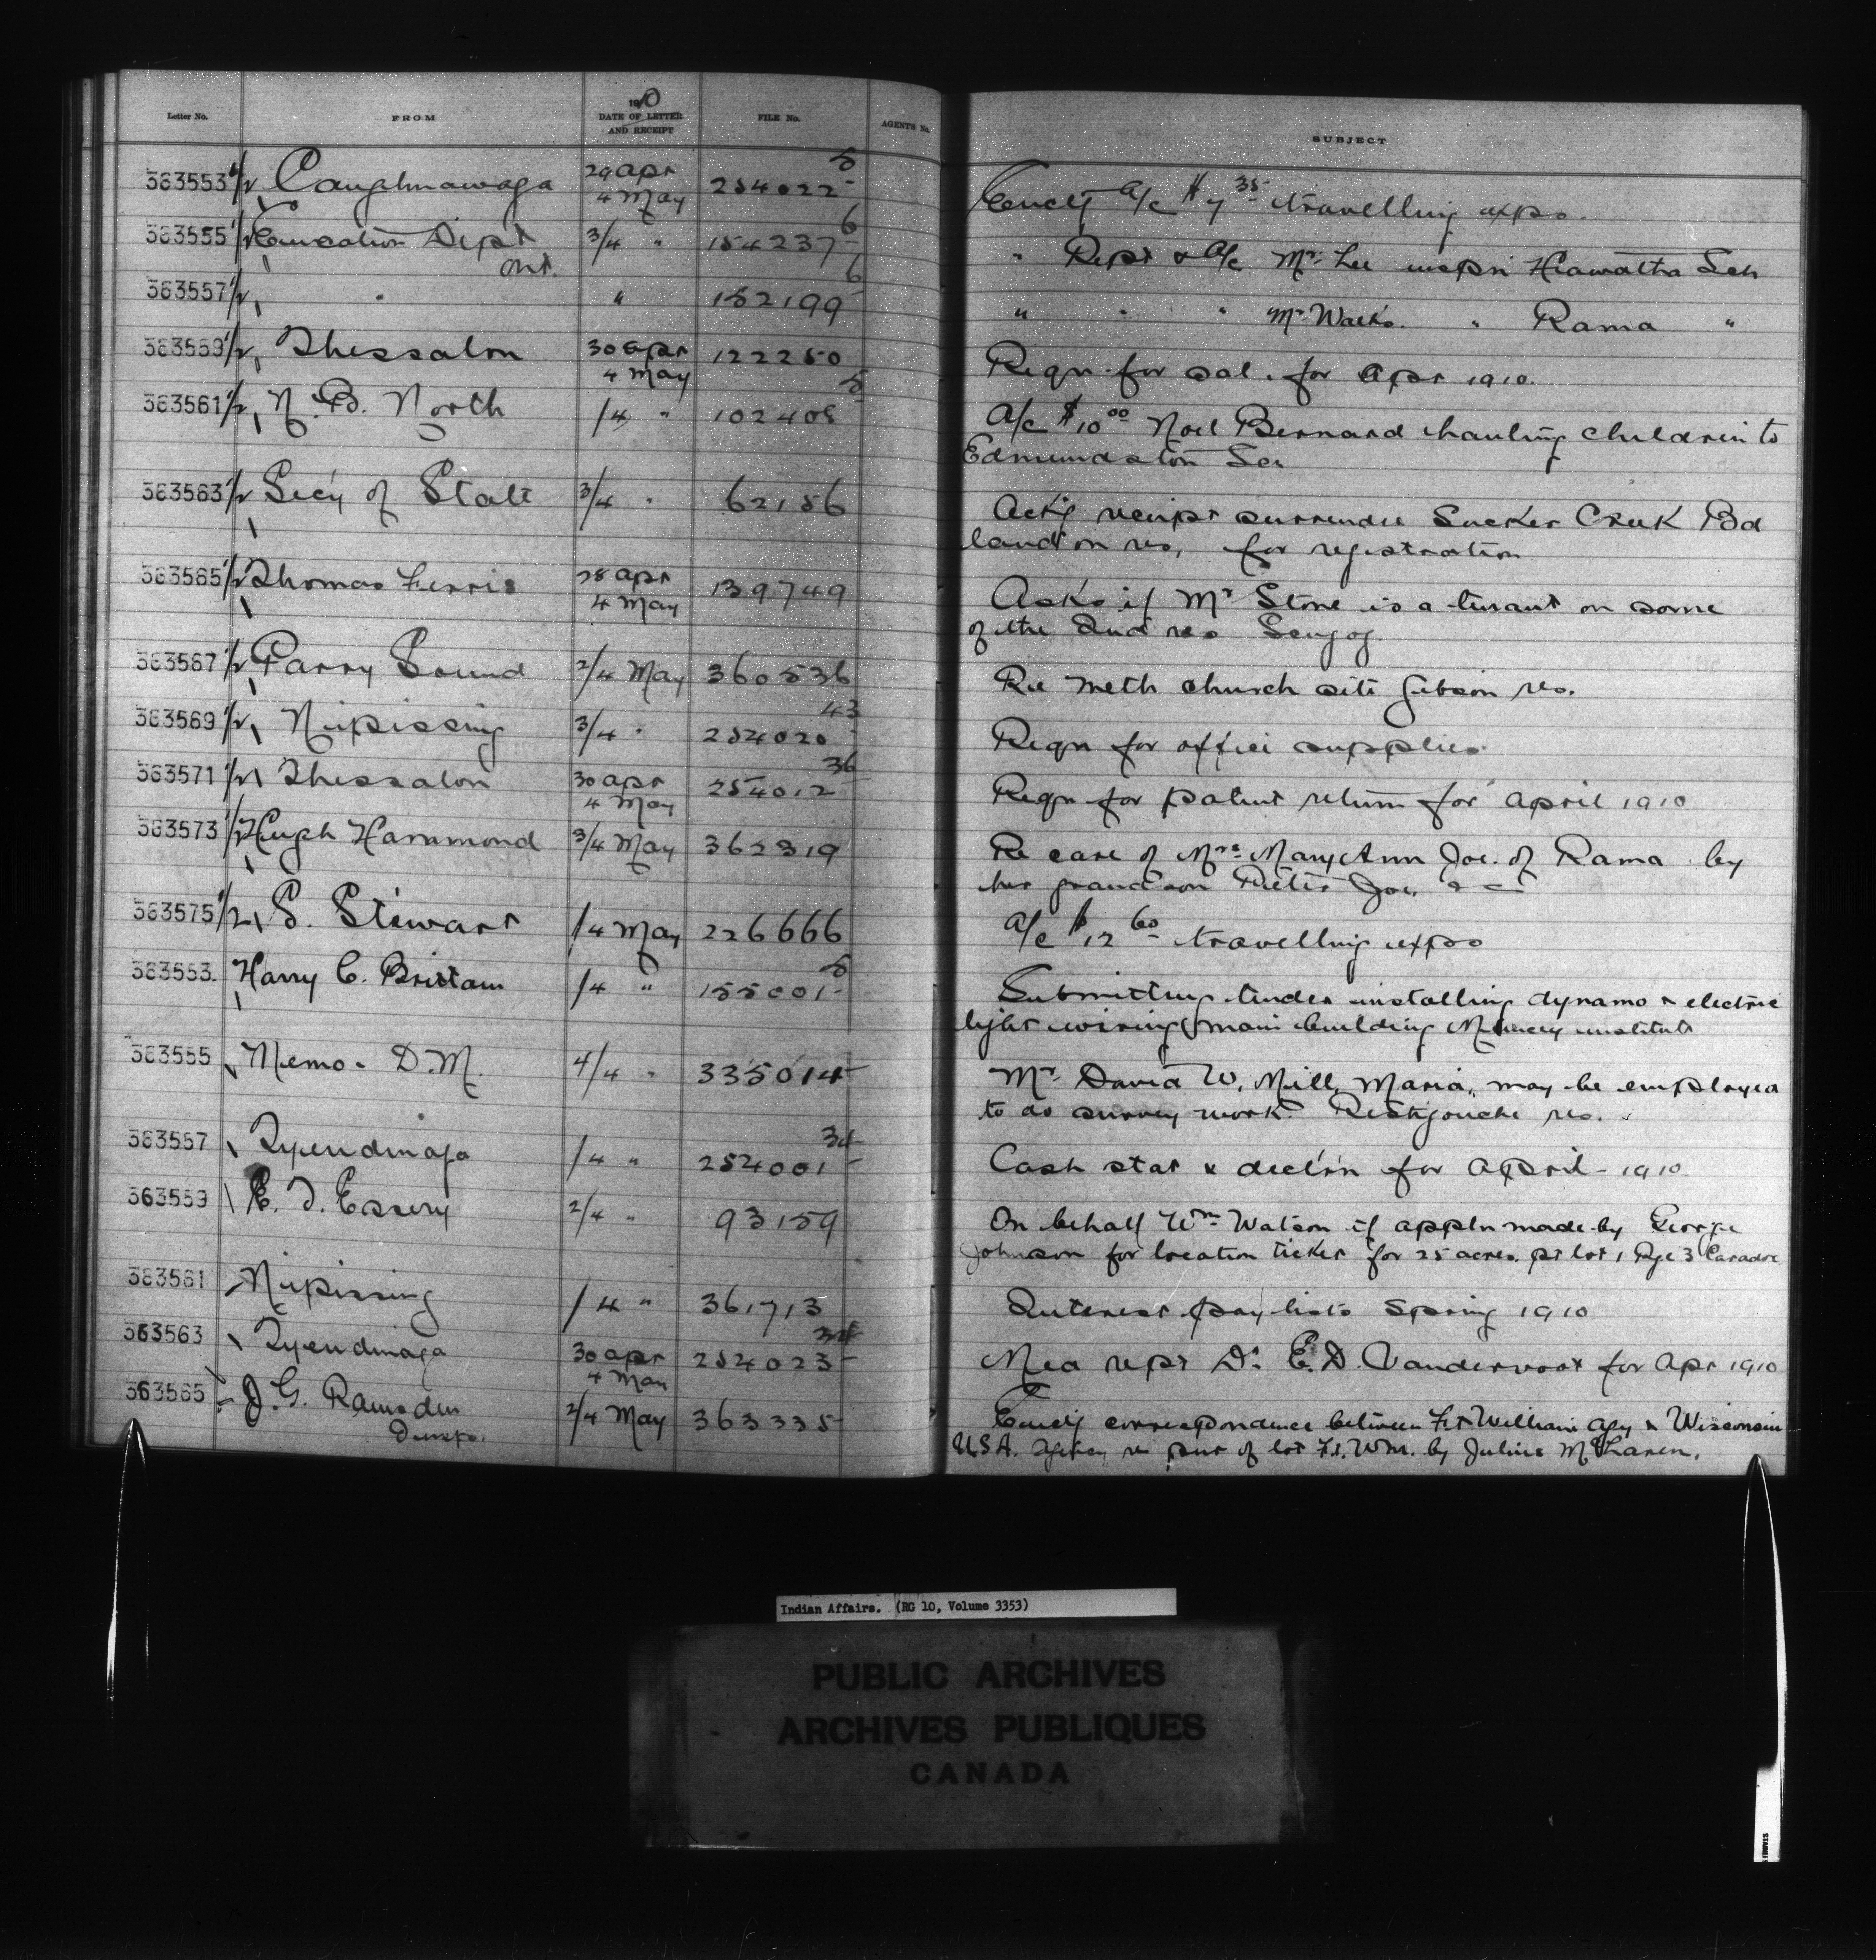 Letter No. FROM 1910 DATE OF LETTER AND RECEIPT FILE No. AGENT'S No. SUBJECT
363553 1/2 Caughnawaga 29 Apr 4 May 254022-5 Encl'g a/c $7 35 travelling exps.
363555 1/2 Education Dept Ont. 3/4 " 154237-6 " Rept & a/c Mr. Lee inspn Hiawatha Sch
363557 1/2 " " 152199-6 " " " Mr. Walks. " Rama "
363559 1/2 Thessalon 30 Apr 4 May 122250 Reqn for sal. for Apr 1910.
363561 1/2 N.B. North 1/4 " 102408-5 A/c $10 00 Noel Bernard hauling children to
Edmundston Sch
363563 1/2 Sec'y of State 3/4 " 62156 Ack'g receipt surrender Sucker Creek Bd
land on res. for registration
363565 1/2 Thomas Ferris 28 Apr 4 May 139749 Asks if Mr Stone is a tenant on some
of the Ind res Scugog.
363567 1/2 Parry Sound 2/4 May 360536 Re Meth church site Gibson res.
363569 1/2 Nipissing 3/4 " 254020-43 Reqn for office supplies
363571 1/2 Thessalon 30 Apr 4 May 254012-36 Reqn for patent return for April 1910
363573 1/2 Hugh Hammond 3/4 May 362319 Re care of Mrs. Mary Ann Joe. of Rama by
her grandson Peter Joe, &c
363575 1/2 S. Stewart 1/4 May 226666 A/c $12 60 travelling exps
363553. Harry C. Brittain 1/4 " 155001-5 Submitting tender installing dynamo & electric
light wiring main building institute
363555 Memo. D.M. 4/4 " 335014 Mr. David W. Mill, Maria, may be employed
to do survey work Restigouche res.
363557 Tyendinaga 1/4 " 254001-34 Cash stat & decl'n for April 1910
363559 E. T. Essery 2/4 " 93159 On behalf Wm. Watson if appln made by George
Johnson for location ticket for 25 acres pt lot 1 Rge 3 Caradoc
363561 Nipissing 1/4 " 361713 Interest pay lists Spring 1910
363563 Tyendinaga 30 Apr 4 May 254023-34 Med rept Dr. E.D. Vandervoort for Apr 1910
363565 J.G. Ramsden 2/4 May 363335 Encl'g correspondence between Ft William Agcy & Wisconsin
U.S.A. Agency re pur of lot Ft. Wm. by Julius McLaren.
Indian Affairs. (RG 10, Volume 3353)
PUBLIC ARCHIVES
ARCHIVES PUBLIQUES
CANADA